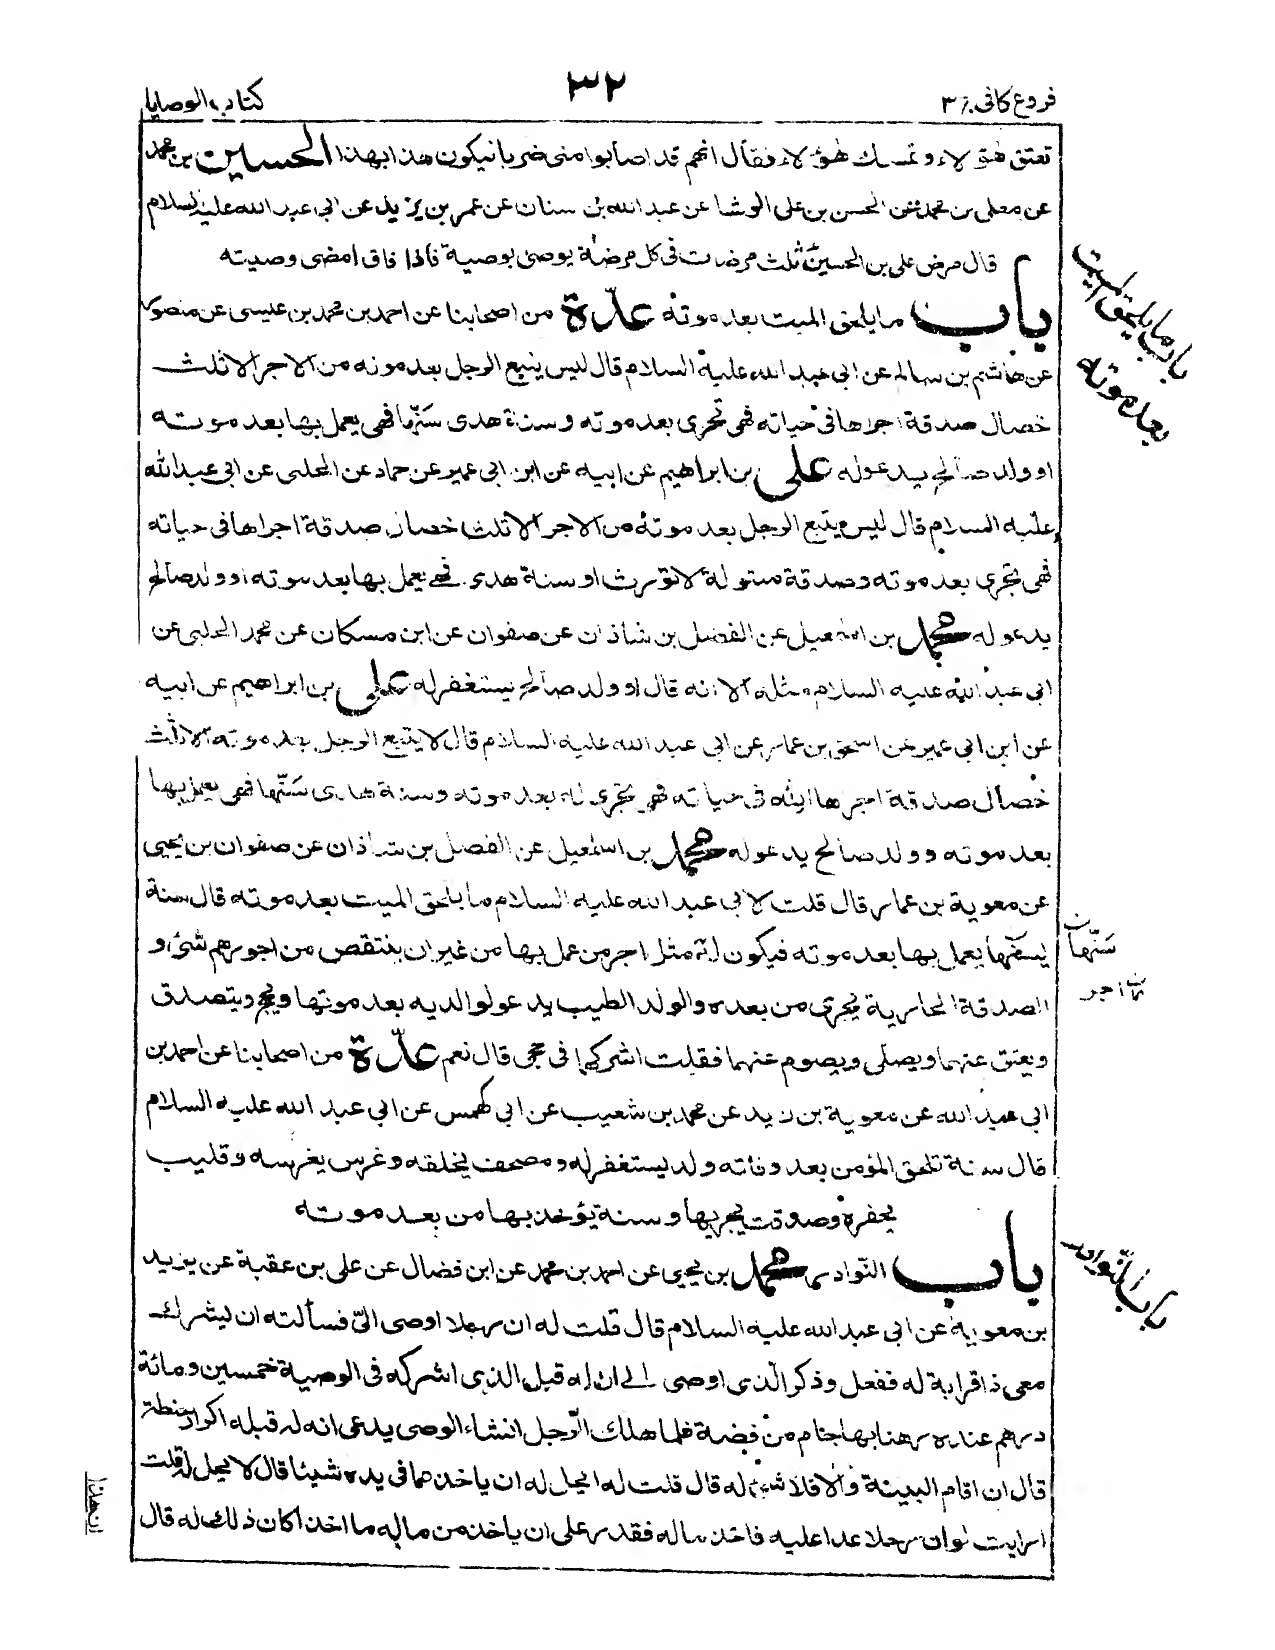 فروع كافى ج ٣
٣٢
كتاب الوصايا
تعتق هؤلاء وتمسك هؤلاء فقال انهم قد اصابوا منى ضربا نيكون هذا بهذا الحسين بن محمد
عن معلى بن محمد عن الحسن بن على الوشا عن عبد الله بن سنان عن عمر بن يزيد عن ابى عبد الله عليه السلام
قال مرض على بن الحسين ثلث مرضات فى كل مرضة يوصى بوصية فاذا فاق امضى وصيته
باب ما يلحق الميت بعد موته عدّة من اصحابنا عن احمد بن محمد بن عيسى عن منصور
عن هاشم بن سالم عن ابى عبد الله عليه السلام قال ليس يتبع الرجل بعد موته من الاجر الا ثلث
خصال صدقة اجراها فى حياته فهى تجرى بعد موته وسنة هدى سنّها فهى يعمل بها بعد موته
او ولد صالح يدعو له على بن ابراهيم عن ابيه عن ابن ابى عمير عن حماد عن الحلبى عن ابى عبد الله
عليه السلام قال ليس يتبع الرجل بعد موته من الاجر الا ثلث خصال صدقة اجراها فى حياته
فهى تجرى بعد موته وصدقة مبتولة لا تورث او سنة هدى فهى يعمل بها بعد موته او ولد صالح
يدعو له محمد بن اسمعيل عن الفضل بن شاذان عن صفوان عن ابن مسكان عن محمد الحلبى عن
ابى عبد الله عليه السلام مثله الا انه قال او ولد صالح يستغفر له على بن ابراهيم عن ابيه
عن ابن ابى عمير عن اسحق بن عمار عن ابى عبد الله عليه السلام قال لا يتبع الرجل بعد موته الا ثلث
خصال صدقة اجراها لله فى حياته فهى تجرى له بعد موته وسنة هدى سنّها فهى يعمل بها
بعد موته وولد صالح يدعو له محمد بن اسمعيل عن الفضل بن شاذان عن صفوان بن يحيى
عن معوية بن عمار قال قلت لابى عبد الله عليه السلام ما يلحق الميت بعد موته قال سنة
يسنّها يعمل بها بعد موته فيكون له مثل اجر من عمل بها من غير ان ينتقص من اجورهم شئ و
الصدقة الجارية تجرى من بعده والولد الطيب يدعو لوالديه بعد موتهما ويحج ويتصدق
ويعتق عنهما ويصلى ويصوم عنهما فقلت اشركهما فى حجى قال نعم عدّة من اصحابنا عن احمد بن
ابى عبد الله عن معوية بن زيد عن محمد بن شعيب عن ابى كهمس عن ابى عبد الله عليه السلام
قال ستة تلحق المؤمن بعد وفاته ولد يستغفر له ومصحف يخلفه وغرس يغرسه وقليب
يحفره وصدقة يجريها وسنة يؤخذ بها من بعد موته
باب النّوادر محمد بن يحيى عن احمد بن محمد عن ابن فضال عن على بن عقبة عن يزيد
بن معوية عن ابى عبد الله عليه السلام قال قلت له ان رجلا اوصى الىّ فسألته ان يشرك
معى ذا قرابة له ففعل وذكر الذى اوصى الى ان له قبل الذى اشركه فى الوصية خمسين ومائة
درهم عنده رهنا بها جام من فضة فلما هلك الرّجل انشاء الوصى يدعى انه له قبله اكرار حنطة
قال ان اقام البينة والا فلا شئ له قال قلت له ايحل له ان ياخذ مما فى يده شيئا قال لا يحل له قلت
ارايت لوان رجلا عدا عليه فاخذ ماله فقدر على ان ياخذ من ماله ما اخذ اكان ذلك له قال
باب ما يلحق الميت
بعد موته
سنّها
اجر
باب النّوادر
ان هذا